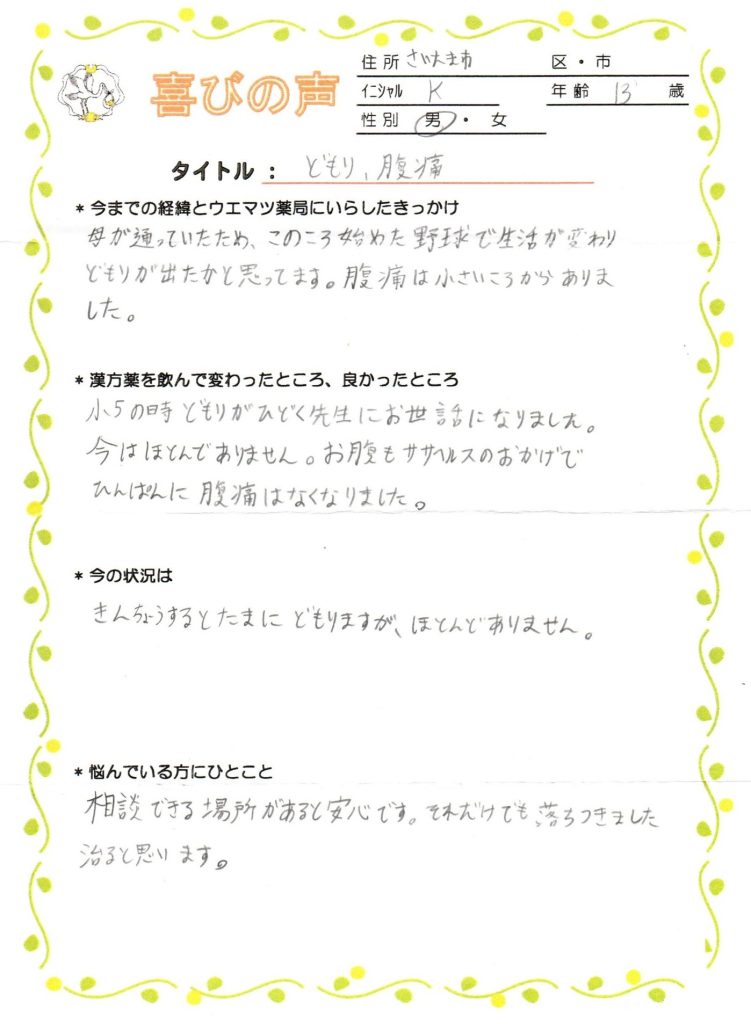 喜びの声
住所 さいたま市 区・市
イニシャル K 年齢 13 歳
性別 男・女
タイトル： どもり、腹痛
＊今までの経緯とウエマツ薬局にいらしたきっかけ
母が通っていたため、このころ始めた野球で生活が変わり
どもりが出たかと思ってます。腹痛は小さいころからありま
した。
＊漢方薬を飲んで変わったところ、良かったところ
小5の時どもりがひどく先生にお世話になりました。
今はほとんどありません。お腹もササヘルスのおかげで
ひんぱんに腹痛はなくなりました。
＊今の状況は
きんちょうするとたまにどもりますが、ほとんどありません。
＊悩んでいる方にひとこと
相談できる場所があると安心です。それだけでも落ちつきました
治ると思います。